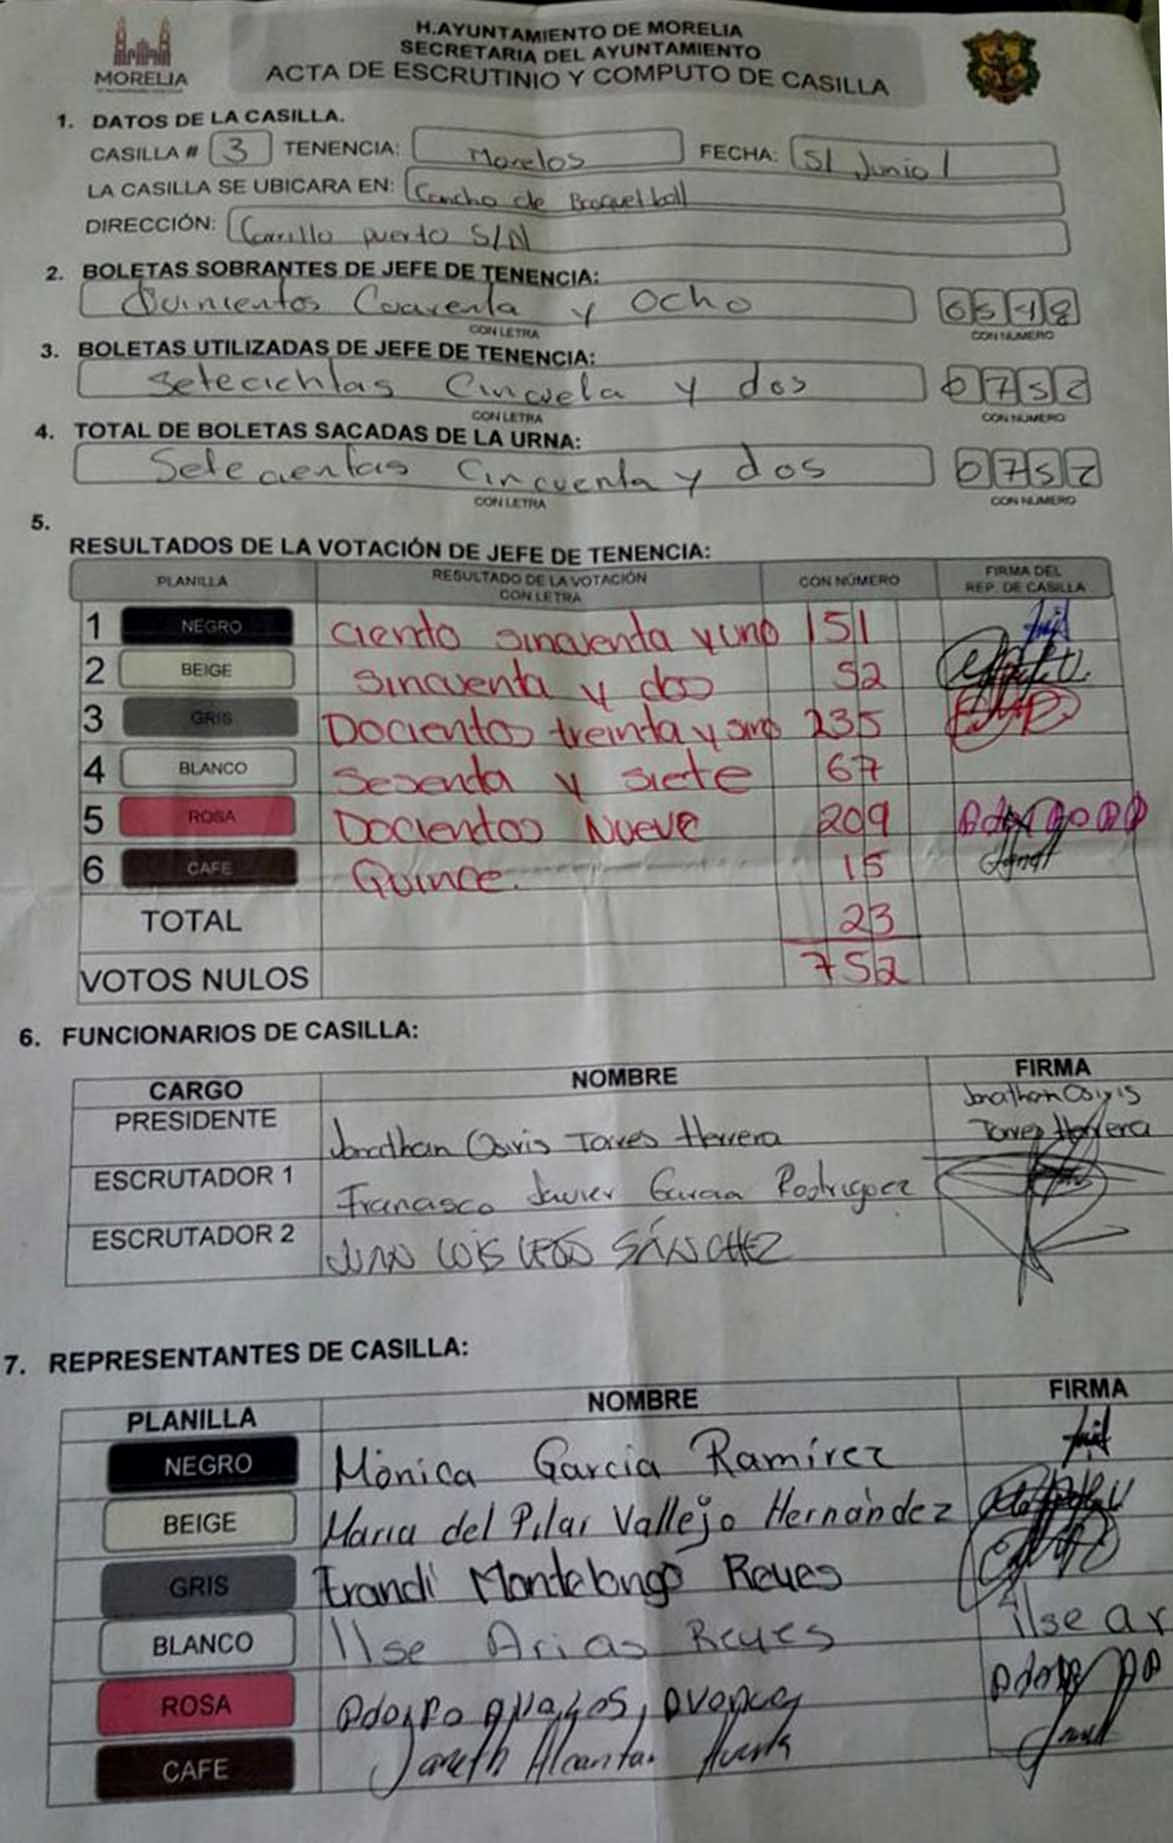 H.AYUNTAMIENTO DE MORELIA
SECRETARIA DEL AYUNTAMIENTO
ACTA DE ESCRUTINIO Y COMPUTO DE CASILLA
MORELIA
1. DATOS DE LA CASILLA.
CASILLA # 3 TENENCIA: Morelos FECHA: 51 Junio 1
LA CASILLA SE UBICARA EN: Cancha de
DIRECCIÓN: Carrillo puerto S/N
2. BOLETAS SOBRANTES DE JEFE DE TENENCIA:
Quinientos Cuarenta y ocho 0548
CON LETRA CON NUMERO
3. BOLETAS UTILIZADAS DE JEFE DE TENENCIA:
Cincuela y dos 0752
CON LETRA CON NUMERO
4. TOTAL DE BOLETAS SACADAS DE LA URNA:
Setecientas Cincuenta y dos 0752
CON LETRA CON NUMERO
5.
RESULTADOS DE LA VOTACIÓN DE JEFE DE TENENCIA:
PLANILLA RESULTADO DE LA VOTACIÓN CON LETRA CON NÚMERO FIRMA DEL REP. DE CASILLA
1 NEGRO ciento sincuenta y uno 151
2 BEIGE sincuenta y dos 52
3 GRIS Docientos treinta y 235
4 BLANCO Sesenta y siete 67
5 ROSA Docientos Nueve 209
6 CAFE Quince. 15
TOTAL 23
VOTOS NULOS 752
6. FUNCIONARIOS DE CASILLA:
CARGO NOMBRE FIRMA
PRESIDENTE Jonathan Osiris Torres Herrera Jonathan Osiris Torres Herrera
ESCRUTADOR 1 Francisco Javier Garcia Rodriguez
ESCRUTADOR 2 JUAN LUIS SÁNCHEZ
7. REPRESENTANTES DE CASILLA:
PLANILLA NOMBRE FIRMA
NEGRO Mónica Garcia Ramírez
BEIGE Maria del Pilar Vallejo Hernández
GRIS Erandi Montelongo Reyes
BLANCO Ilse Arias Reyes ilse ar
ROSA
CAFE Janeth Alcantar